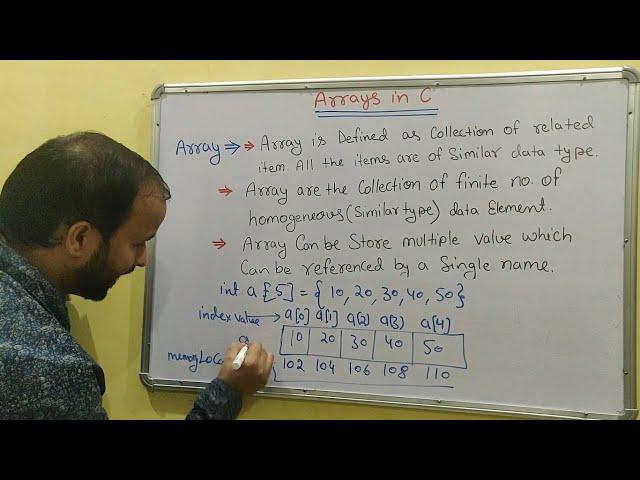 Arrays in C
Array ⇒ ⇒ Array is Defined as Collection of related
item. All the items are of Similar data type.
⇒ Array are the Collection of finite no. of
homogeneous (Similar type) data Element.
⇒ Array Can be Store multiple value which
Can be referenced by a Single name.
int a[5] = { 10, 20, 30, 40, 50}
index value → a[0] a[1] a[2] a[3] a[4]
a 10 20 30 40 50
memory 102 104 106 108 110